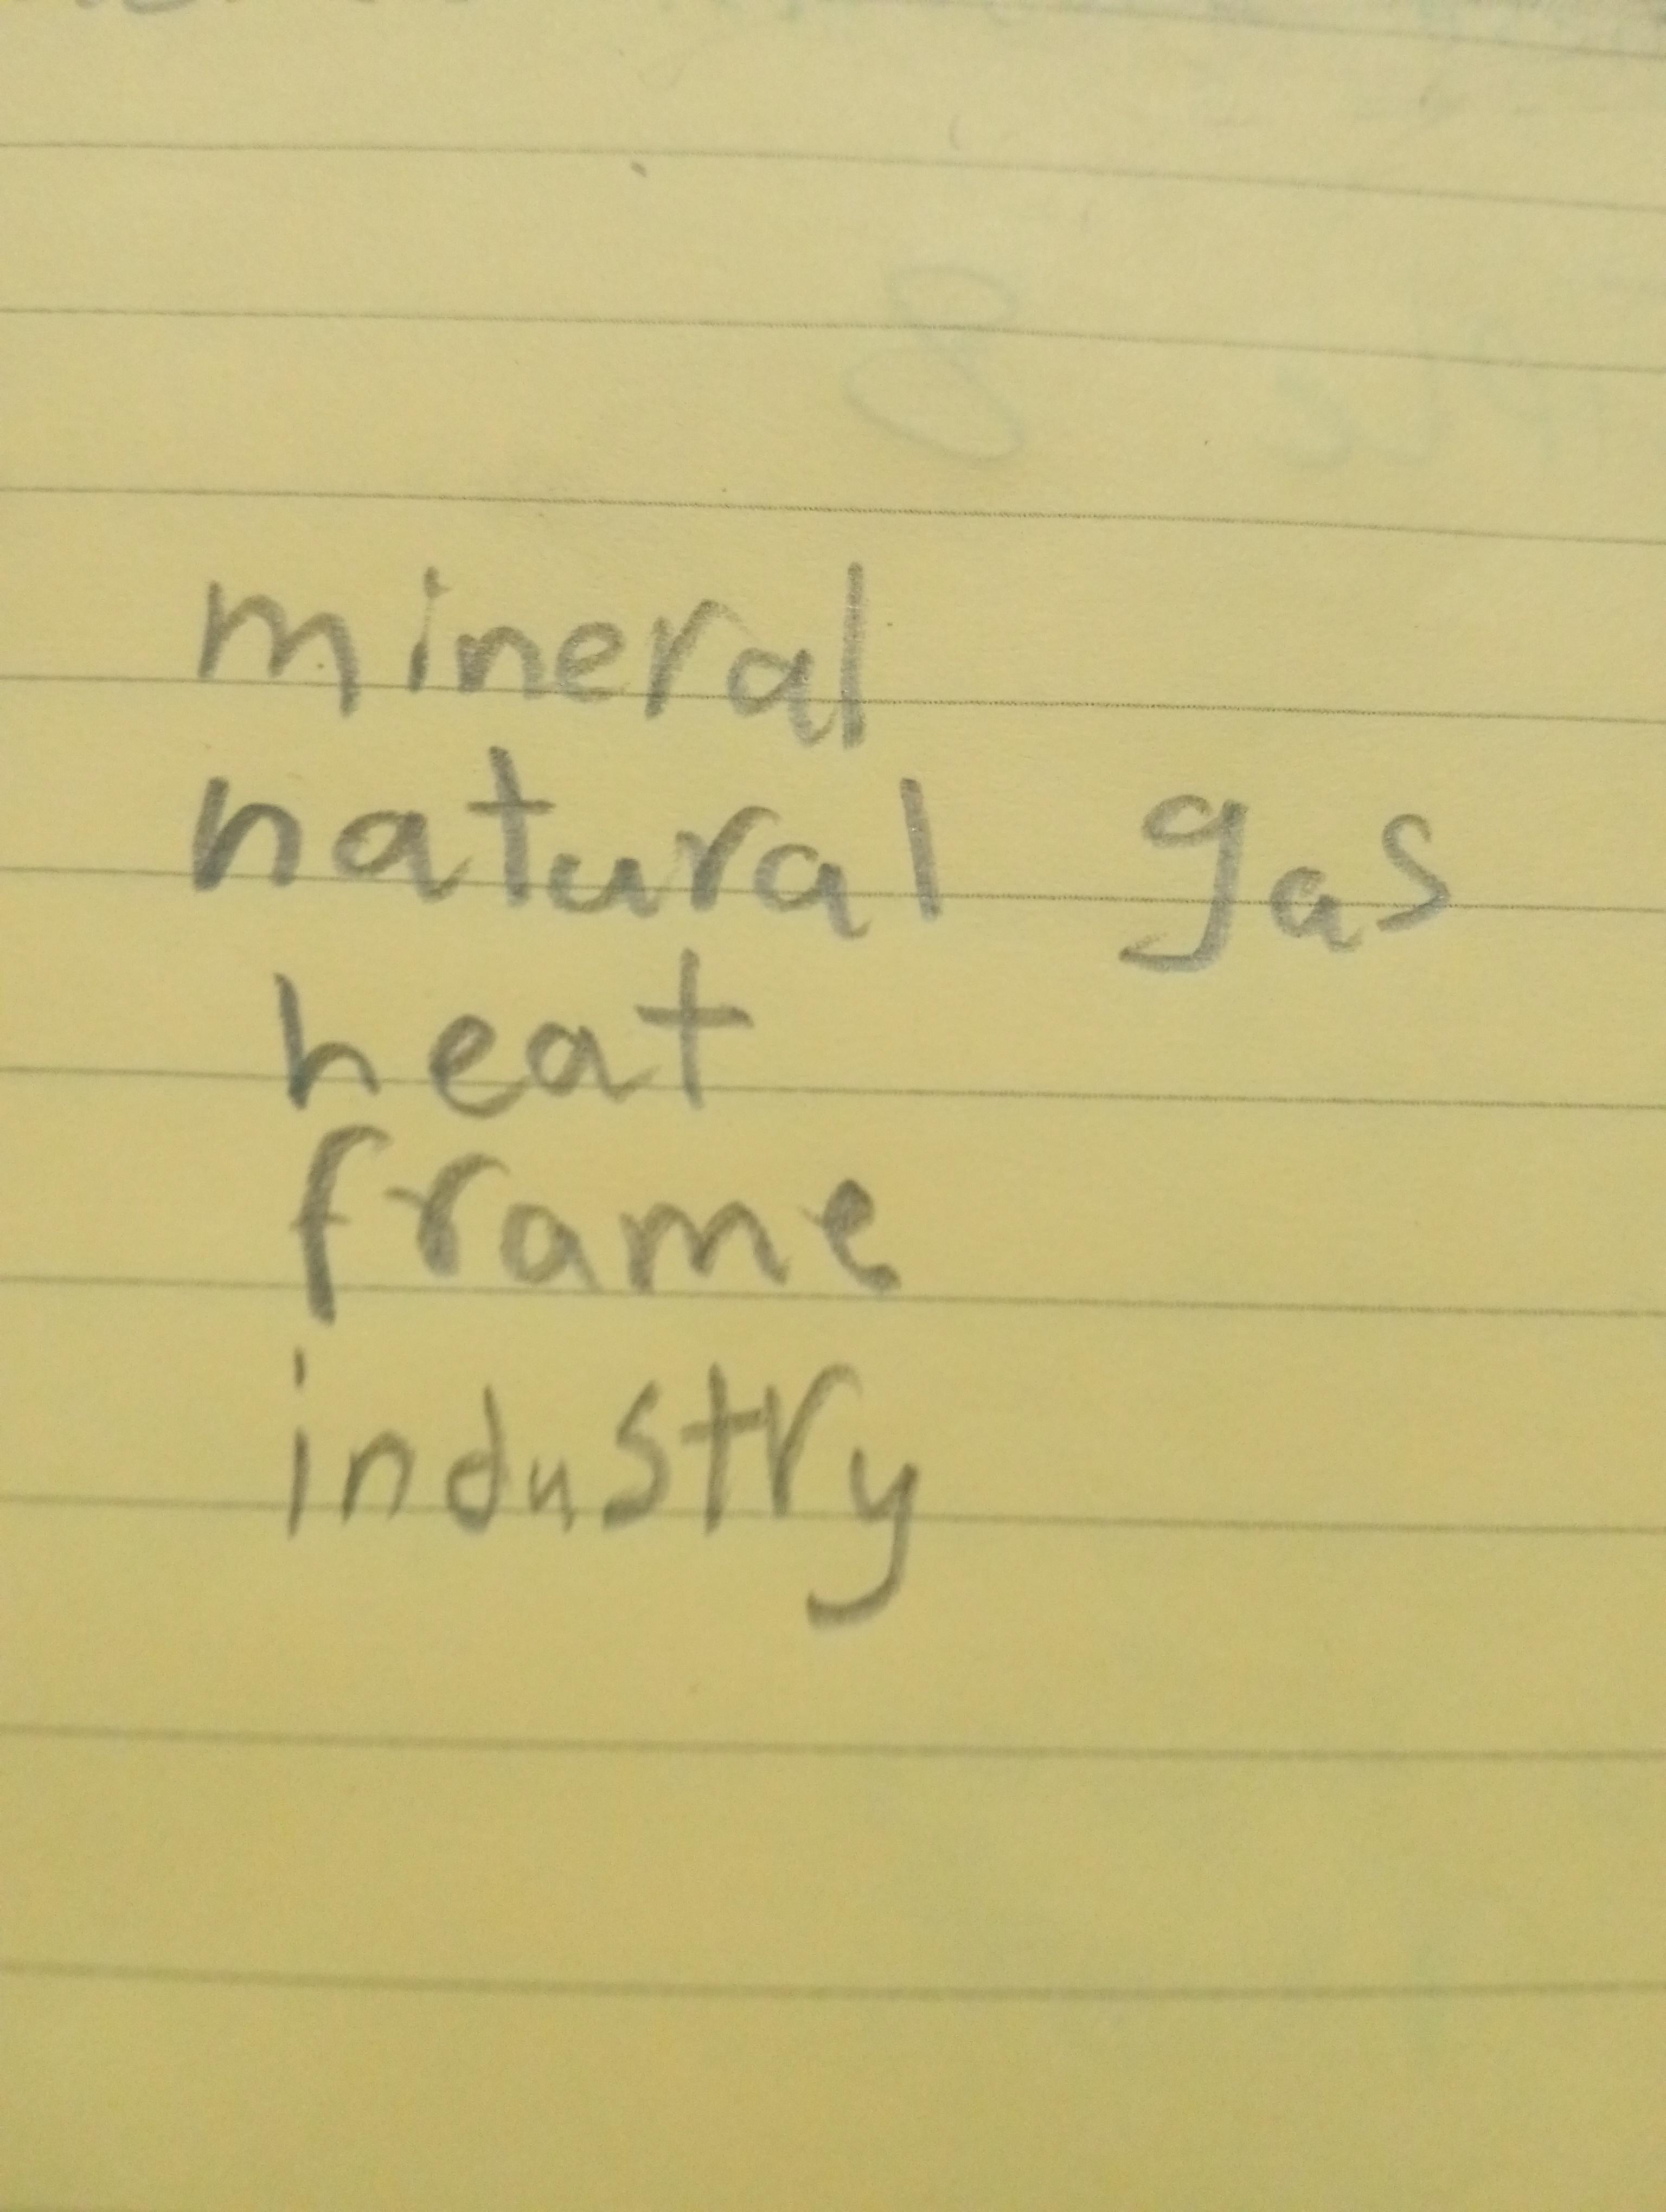 mineral
natural gas
heat
frame
industry